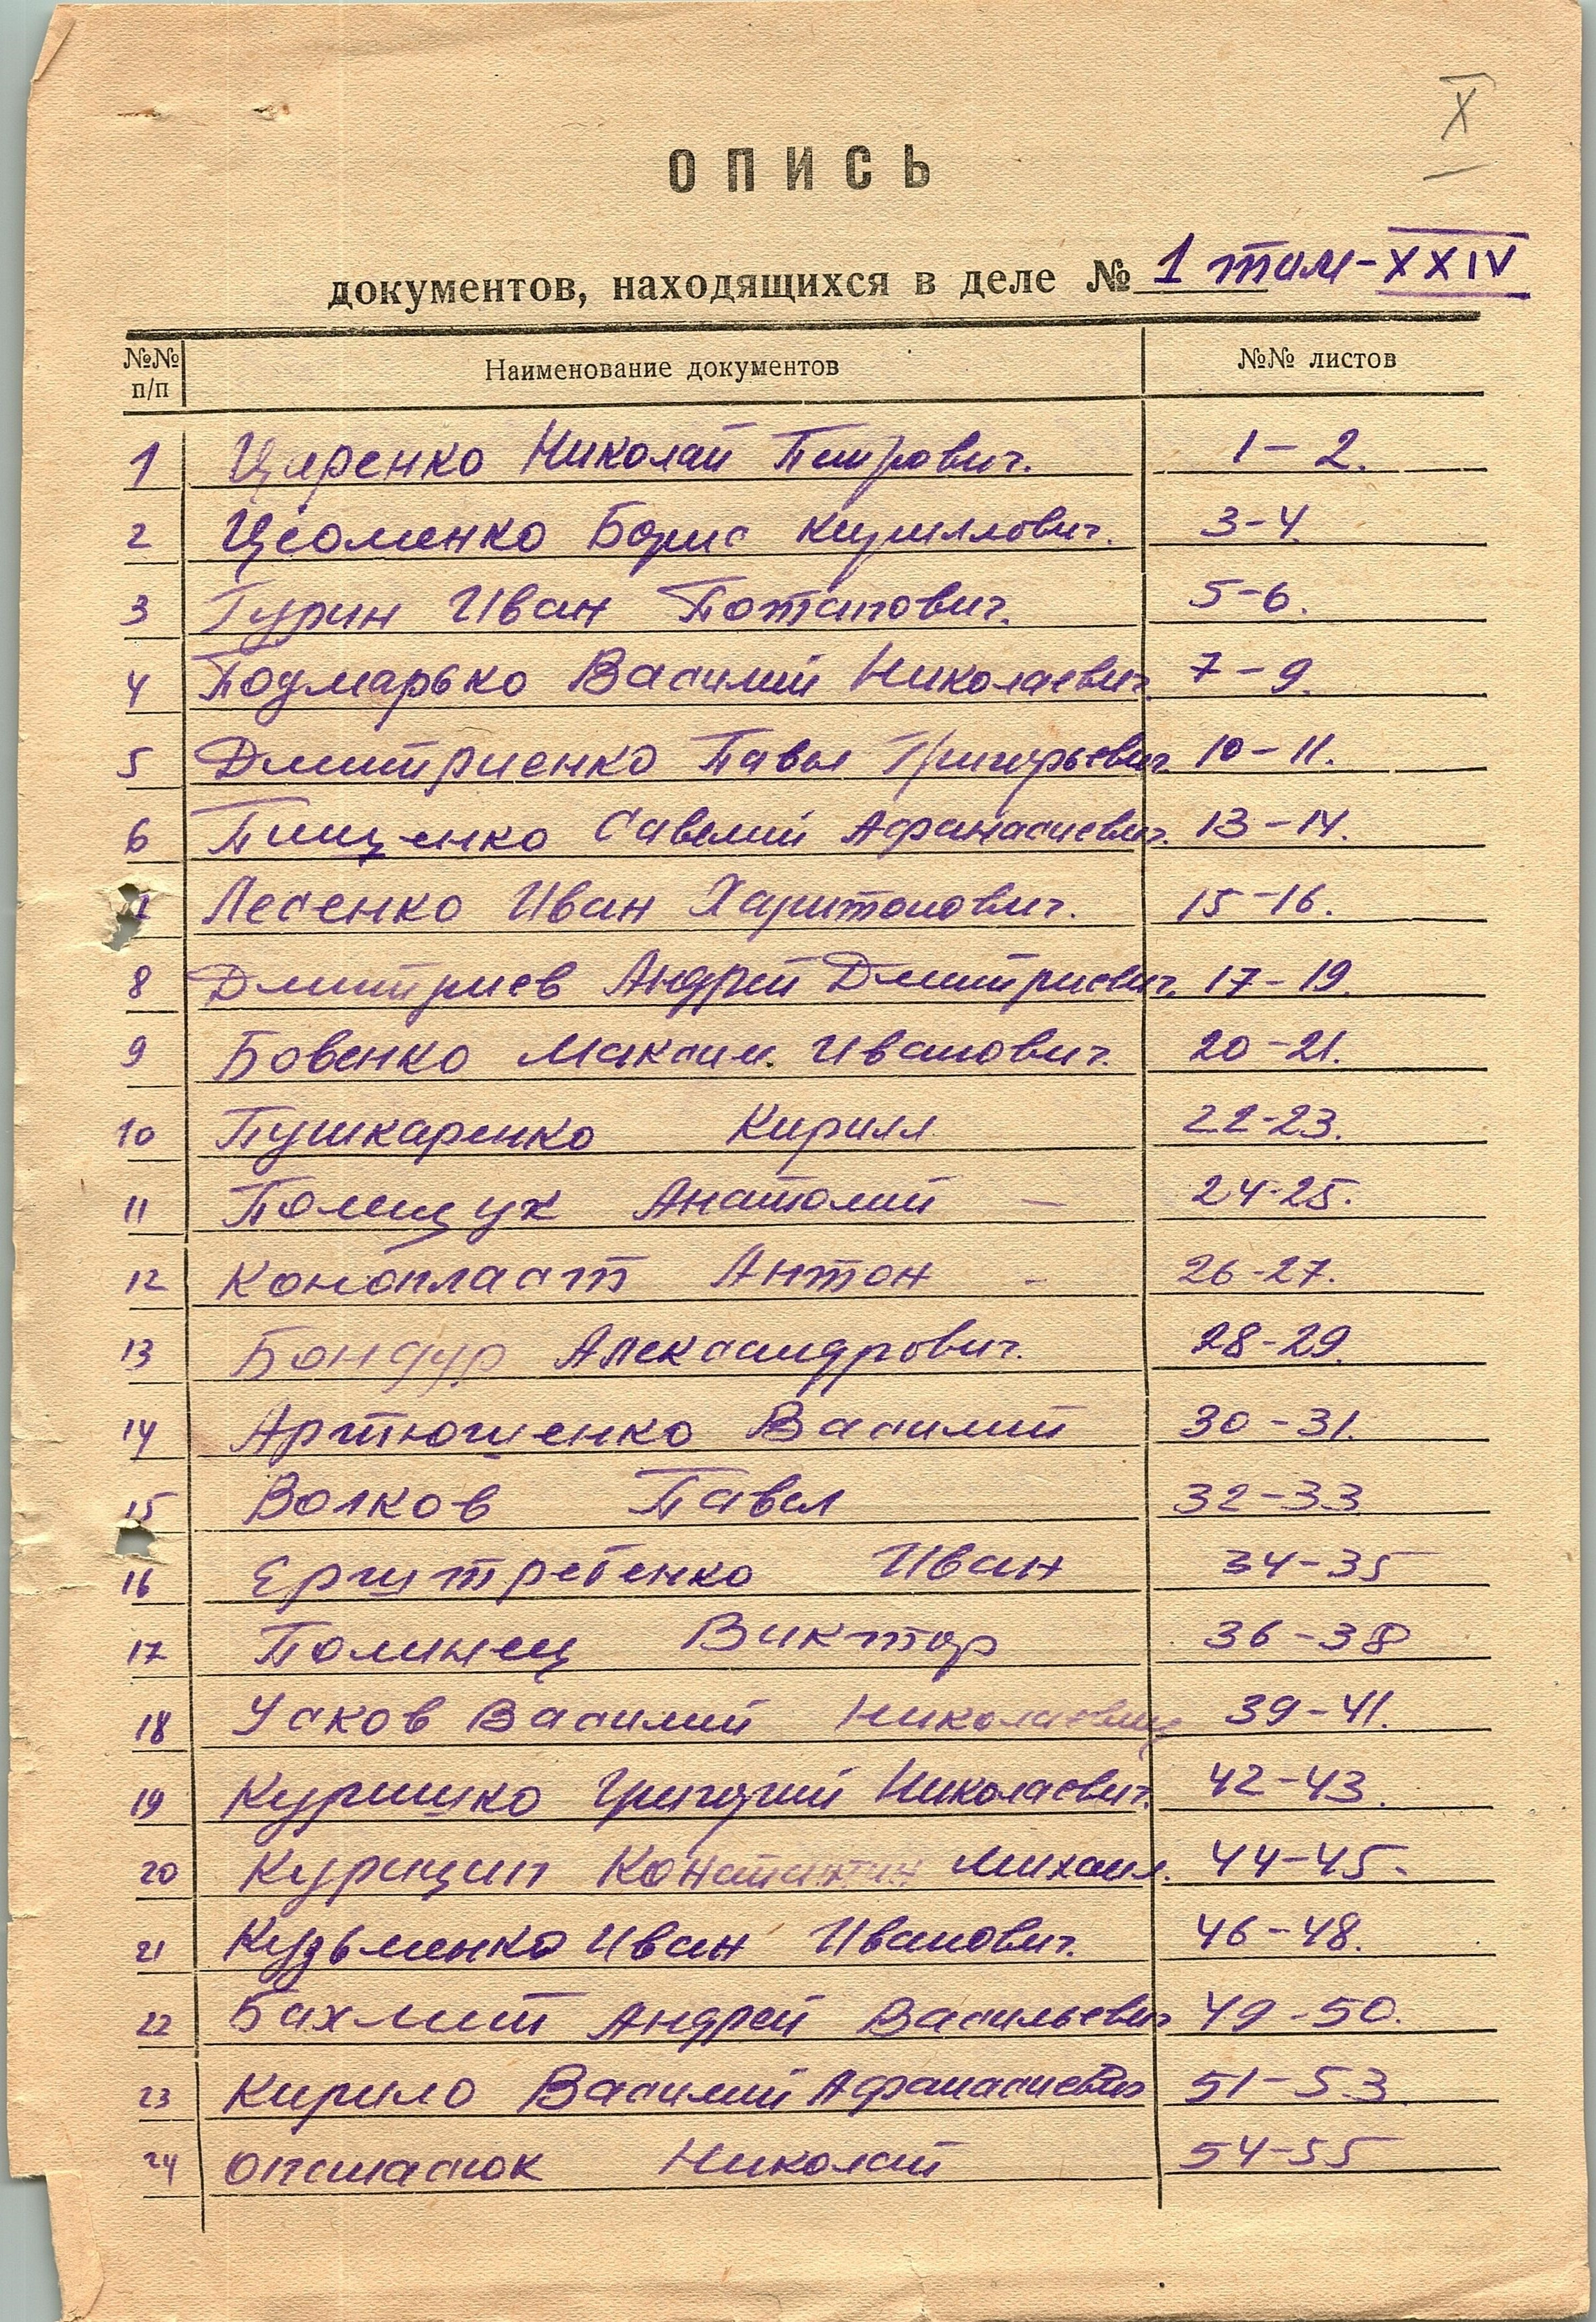 X
ОПИСЬ
документов, находящихся в деле № 1 том-XXIV
№№ п/п Наименование документов №№ листов
1 Николай Петрович. 1-2.
2 Борис Кириллович. 3-4.
3 Гурин Иван Потапович. 5-6.
4 Подмарько Василий Николаевич. 7-9.
5 Дмитриенко Павел Григорьевич. 10-11.
6 Пищенко Савелий Афанасиевич. 13-14.
7 Лесенко Иван Харитонович. 15-16.
8 Дмитриев Андрей Дмитриевич. 17-19.
9 Бовенко Максим Иванович. 20-21.
10 Пушкаренко Кирилл 22-23.
11 Полищук Анатолий — 24-25.
12 Антон - 26-27.
13 Бондур Александрович. 28-29.
14 Артюшенко Василий 30-31.
15 Волков Павел 32-33
16 Иван 34-35
17 Полинец Виктор 36-38
18 Усков Василий Николаевич 39-41.
19 Куришко Григорий Николаевич. 42-43.
20 Константин Михаил. 44-45-
21 Кузьменко Иван Иванович. 46-48.
22 Бахмит Андрей Васильевич 49-50.
23 Кирило Василий Афанасиевич 51-53
24 Николай 54-55